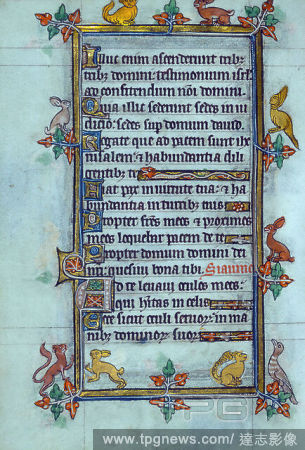 Illuc enim ascenderunt tribz
tribz domini: testimonium isrl
ad confitendum noni domini.
Quia illic sederunt sedes in iu
dicio: sedes sup domum dauid.
Rogate que ad pacem sunt ihr
usalem: & habundantia dili
gentibz te
Fiat pax in uirtute tua: & ha
bundantia in turribz tuis
Propter fres meos & proximos
meos loquebar pacem de te
Propter domum domini dei
nri: quesiui bona tibi.
Ad te leuaui oculos meos:
qui hitas in celis
Ecce sicut oculi seruor in ma
nibz dominor suor
PG
www.tpgnews.com/達志影像